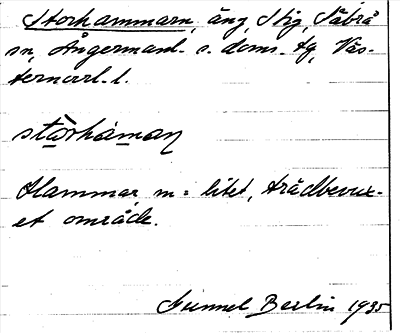 Storhammarn, äng, Stig, Säbrå
sn, Ångermanl. s. doms. tg, Väs-
ternorrl. l.
stȯrhàman
Hammar m = litet, trädbevux-
et område.
Gunnel Berlin 1935